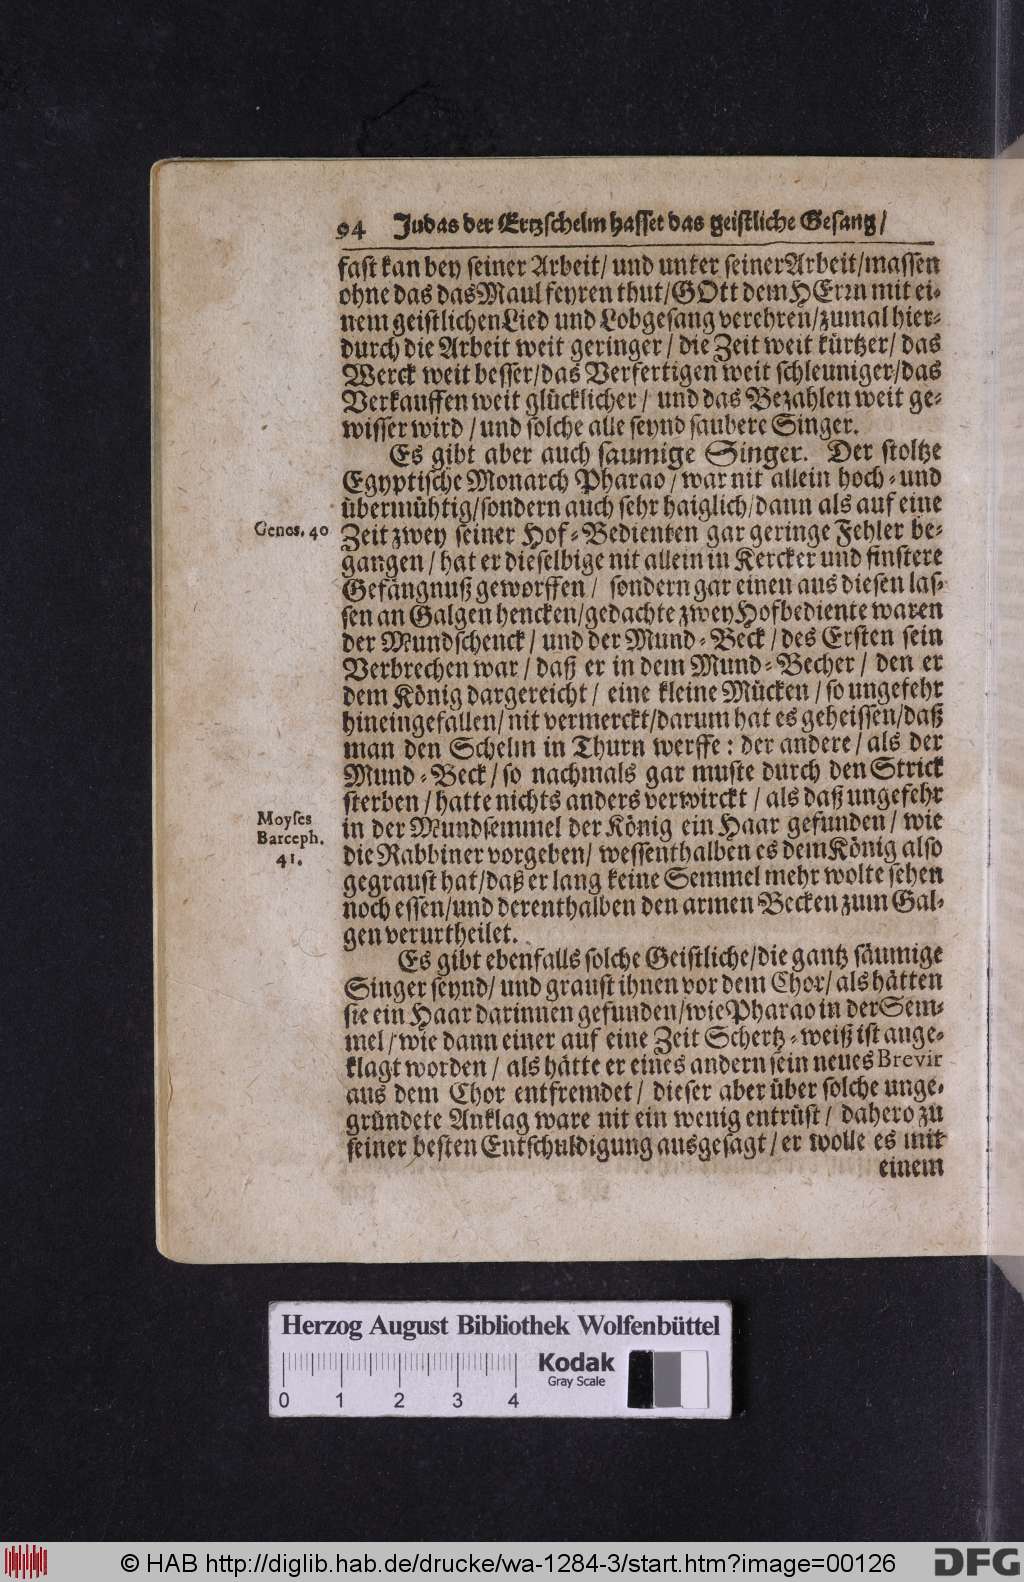 94 Judas der Ertzschelm hasset das geistliche Gesang/
fast kan bey seiner Arbeit/ und unter seiner Arbeit/massen
ohne das das Maul feyren thut/ GOtt dem HErrn mit ei-
nem geistlichen Lied und Lobgesang verehren/ zumal hier-
durch die Arbeit weit geringer / die Zeit weit kürtzer/ das
Werck weit besser/das Verfertigen weit schleuniger/das
Verkauffen weit glücklicher/ und das Bezahlen weit ge-
wisser wird / und solche alle seynd saubere Singer.
Es gibt aber auch saumige Singer. Der stoltze
Egyptische Monarch Pharao/ war nit allein hoch- und
übermühtig/sondern auch sehr haiglich/dann als auf eine
Genes. 40
Zeit zwey seiner Hof-Bedienten gar geringe Fehler be-
gangen / hat er dieselbige nit allein in Kercker und finstere
Gefängnuß geworffen / sondern gar einen aus diesen las-
sen an Galgen hencken/gedachte zwey Hofbediente waren
der Mundschenck / und der Mund-Beck / des Ersten sein
Verbrechen war / daß er in dem Mund-Becher / den er
dem König dargereicht / eine kleine Mücken / so ungefehr
hineingefallen/ nit vermerckt/darum hat es geheissen/daß
man den Schelm in Thurn werffe : der andere / als der
Mund-Beck / so nachmals gar muste durch den Strick
sterben / hatte nichts anders verwirckt / als daß ungefehr
Moyses
Barceph.
41.
in der Mundsemmel der König ein Haar gefunden / wie
die Rabbiner vorgeben/ wessenthalben es dem König also
gegraust hat/daß er lang keine Semmel mehr wolte sehen
noch essen/und derenthalben den armen Becken zum Gal-
gen verurtheilet.
Es gibt ebenfalls solche Geistliche/die gantz säumige
Singer seynd/ und graust ihnen vor dem Chor/ als hätten
sie ein Haar darinnen gefunden/wie Pharao in der Sem-
mel / wie dann einer auf eine Zeit Schertz-weiß ist ange-
klagt worden / als hätte er eines andern sein neues Brevir
aus dem Chor entfremdet / dieser aber über solche unge-
gründete Anklag ware nit ein wenig entrüst / dahero zu
seiner besten Entschuldigung ausgesagt / er wolle es mit
einem
Herzog August Bibliothek Wolfenbüttel
Kodak
Gray Scale
0 1 2 3 4
© HAB http://diglib.hab.de/drucke/wa-1284-3/start.htm?image=00126
DFG